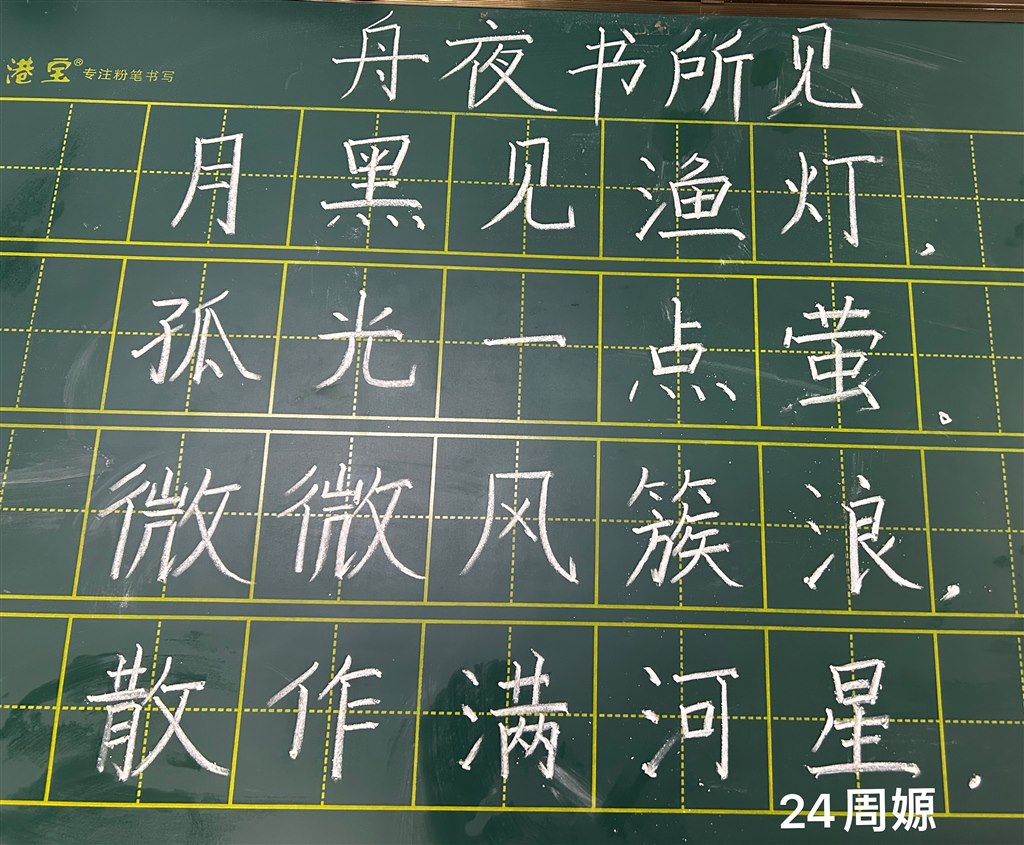 港宝® 专注粉笔书写
舟夜书所见
月黑见渔灯，
孤光一点萤。
微微风簇浪，
散作满河星。
24周嫄